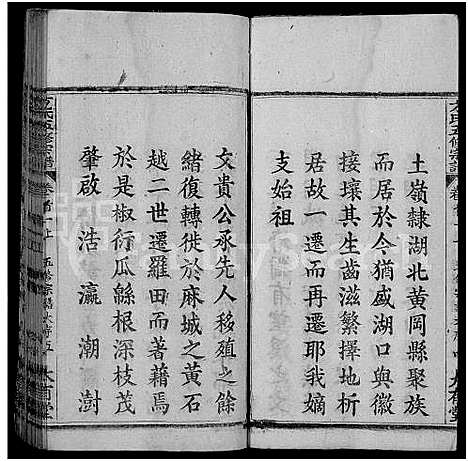 土嶺隸湖北黃岡縣聚族
而居於今猶盛湖口與徽
接壤其生齒滋繁擇地析
居故一遷而再遷耶我嫡
支始祖
文貴公承先人移殖之餘
緒復轉徙於麻城之黃石
越二世遷羅田而著藉焉
於是椒衍瓜緜根深枝茂
肇啟浩瀛潮澍
氏五修宗譜